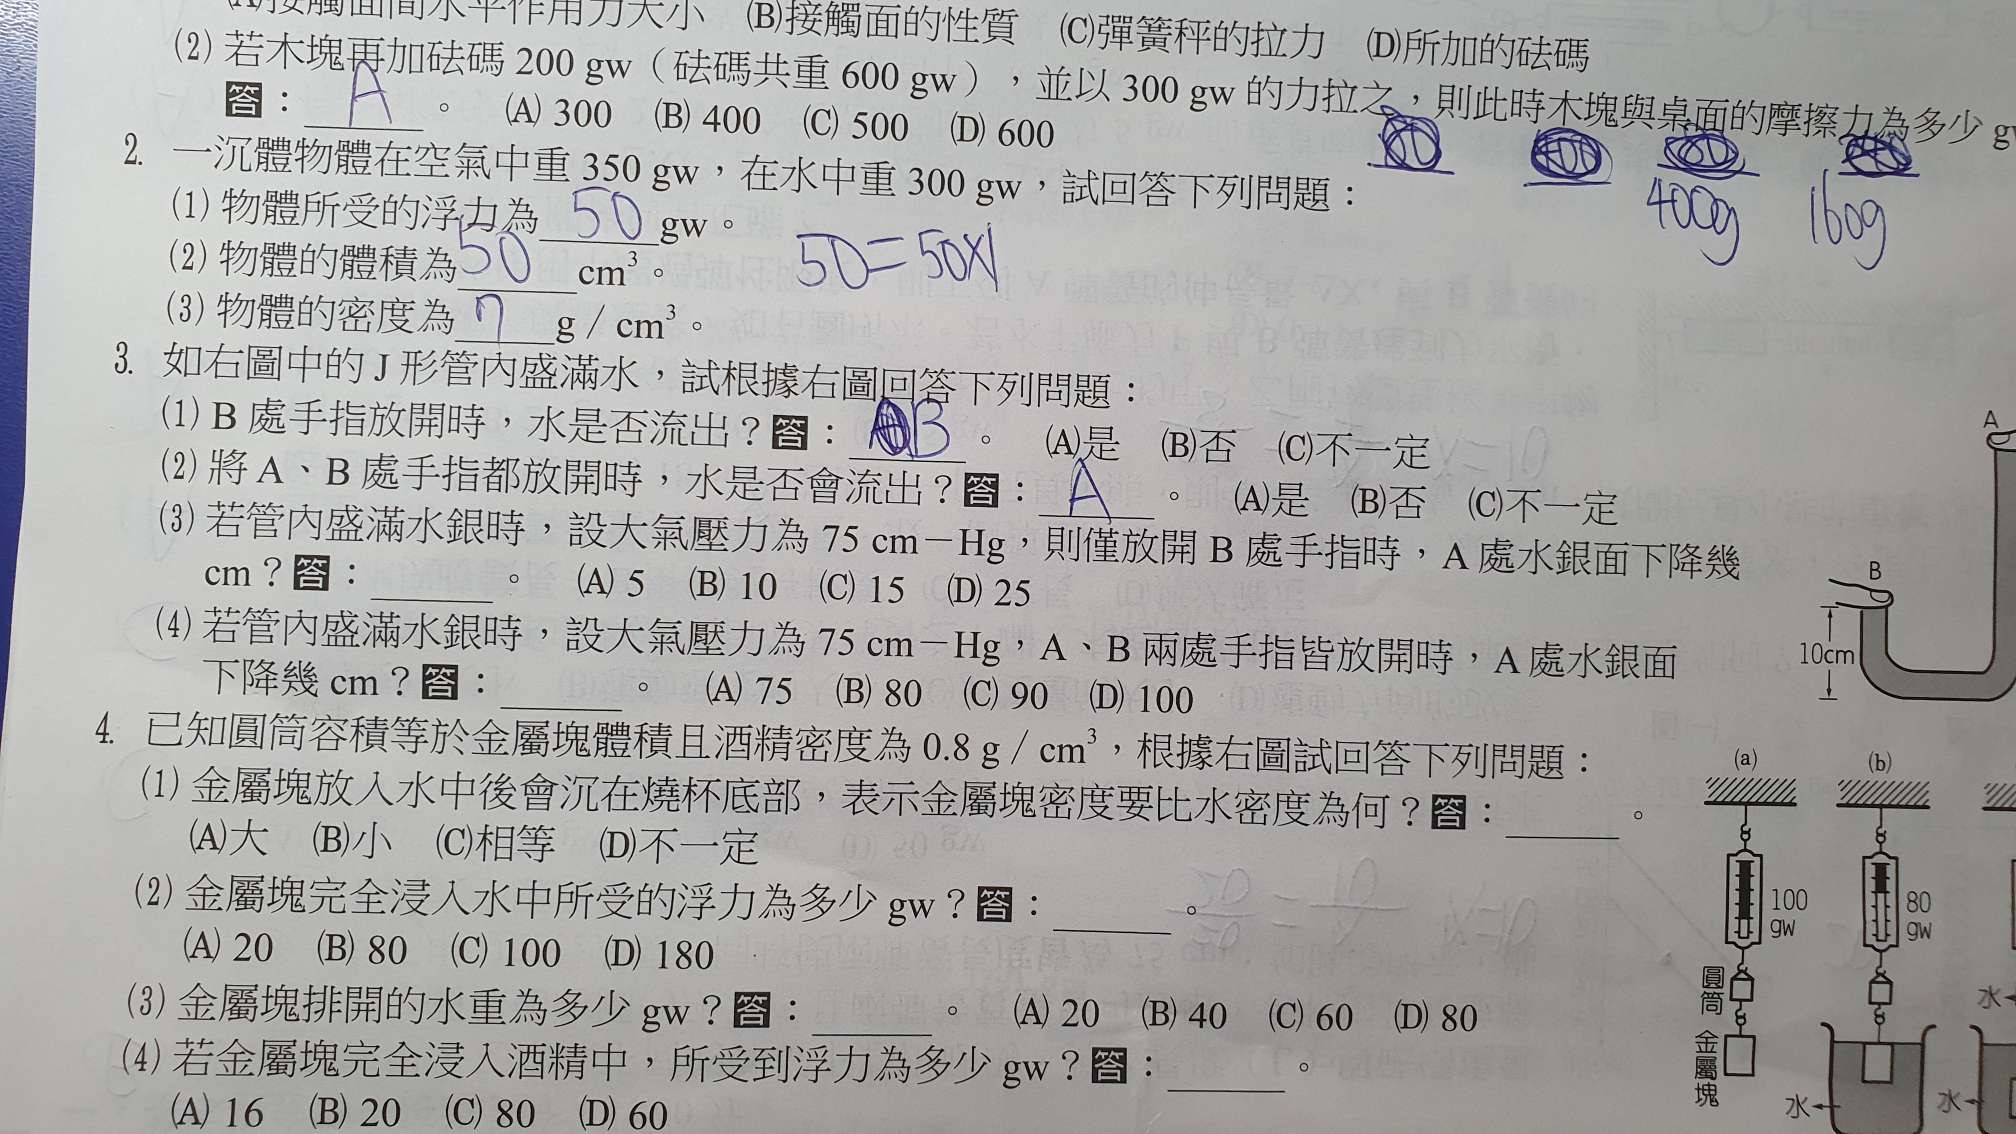 (A)接觸面間水平作用力大小 (B)接觸面的性質 (C)彈簧秤的拉力 (D)所加的砝碼
(2) 若木塊再加砝碼 200 gw（砝碼共重 600 gw），並以 300 gw 的力拉之，則此時木塊與桌面的摩擦力為多少 gw
答：A。 (A) 300 (B) 400 (C) 500 (D) 600
2. 一沉體物體在空氣中重 350 gw，在水中重 300 gw，試回答下列問題：
400g 160g
(1) 物體所受的浮力為 50 gw。
(2) 物體的體積為 50 cm³。 50=50×1
(3) 物體的密度為 7 g／cm³。
3. 如右圖中的 J 形管內盛滿水，試根據右圖回答下列問題：
(1) B 處手指放開時，水是否流出？答：B。 (A)是 (B)否 (C)不一定
(2) 將 A、B 處手指都放開時，水是否會流出？答：A。 (A)是 (B)否 (C)不一定
(3) 若管內盛滿水銀時，設大氣壓力為 75 cm－Hg，則僅放開 B 處手指時，A 處水銀面下降幾
cm？答：______。 (A) 5 (B) 10 (C) 15 (D) 25
(4) 若管內盛滿水銀時，設大氣壓力為 75 cm－Hg，A、B 兩處手指皆放開時，A 處水銀面
下降幾 cm？答：______。 (A) 75 (B) 80 (C) 90 (D) 100
A
B
10cm
4. 已知圓筒容積等於金屬塊體積且酒精密度為 0.8 g／cm³，根據右圖試回答下列問題：
(1) 金屬塊放入水中後會沉在燒杯底部，表示金屬塊密度要比水密度為何？答：______。
(A)大 (B)小 (C)相等 (D)不一定
(2) 金屬塊完全浸入水中所受的浮力為多少 gw？答：______。
(A) 20 (B) 80 (C) 100 (D) 180
(3) 金屬塊排開的水重為多少 gw？答：______。 (A) 20 (B) 40 (C) 60 (D) 80
(4) 若金屬塊完全浸入酒精中，所受到浮力為多少 gw？答：______。
(A) 16 (B) 20 (C) 80 (D) 60
(a) (b)
100 gw
80 gw
圓筒
金屬塊
水
水
水